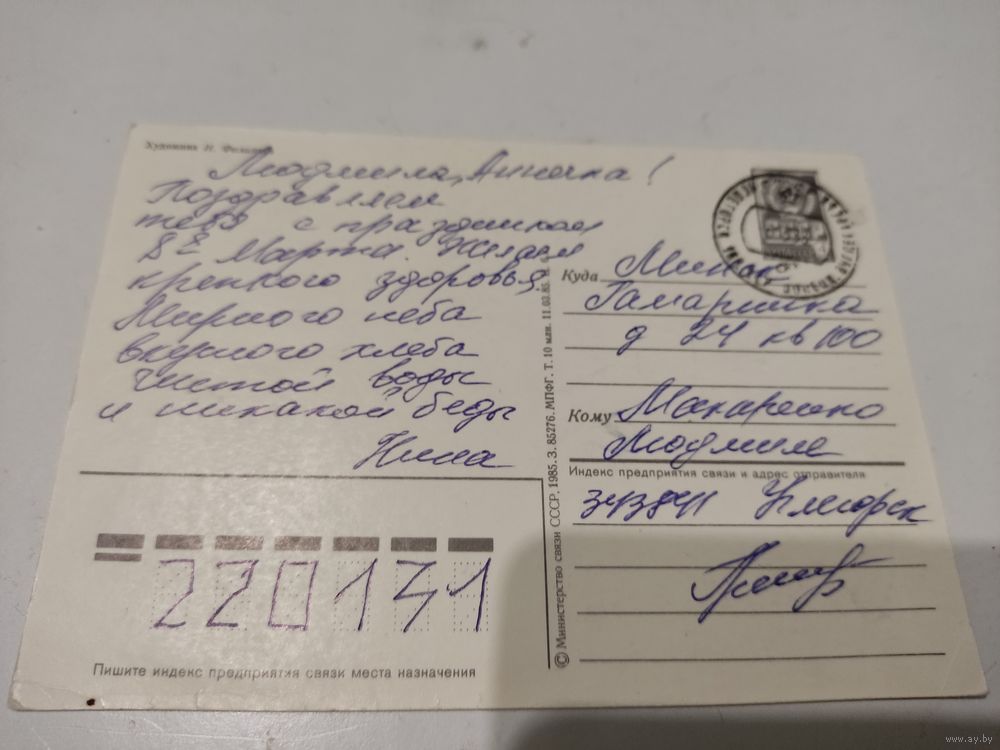 Художник Н.
Людмила, Анночка!
Поздравляем
тебя с праздником
8е Марта. Желаем
крепкого здоровья
Мирного неба
вкусного хлеба
чистой воды
и никакой беды
Нина
Куда Минск
Гамарника
д 24 кв 100
Кому Макаренко
Людмиле
Индекс предприятия связи и адрес отправителя
343841 Углегорск
© Министерство связи СССР, 1985. З. 85276. МПФГ. Т. 10 млн. 11.03.85.
220141
Пишите индекс предприятия связи места назначения
www.ay.by